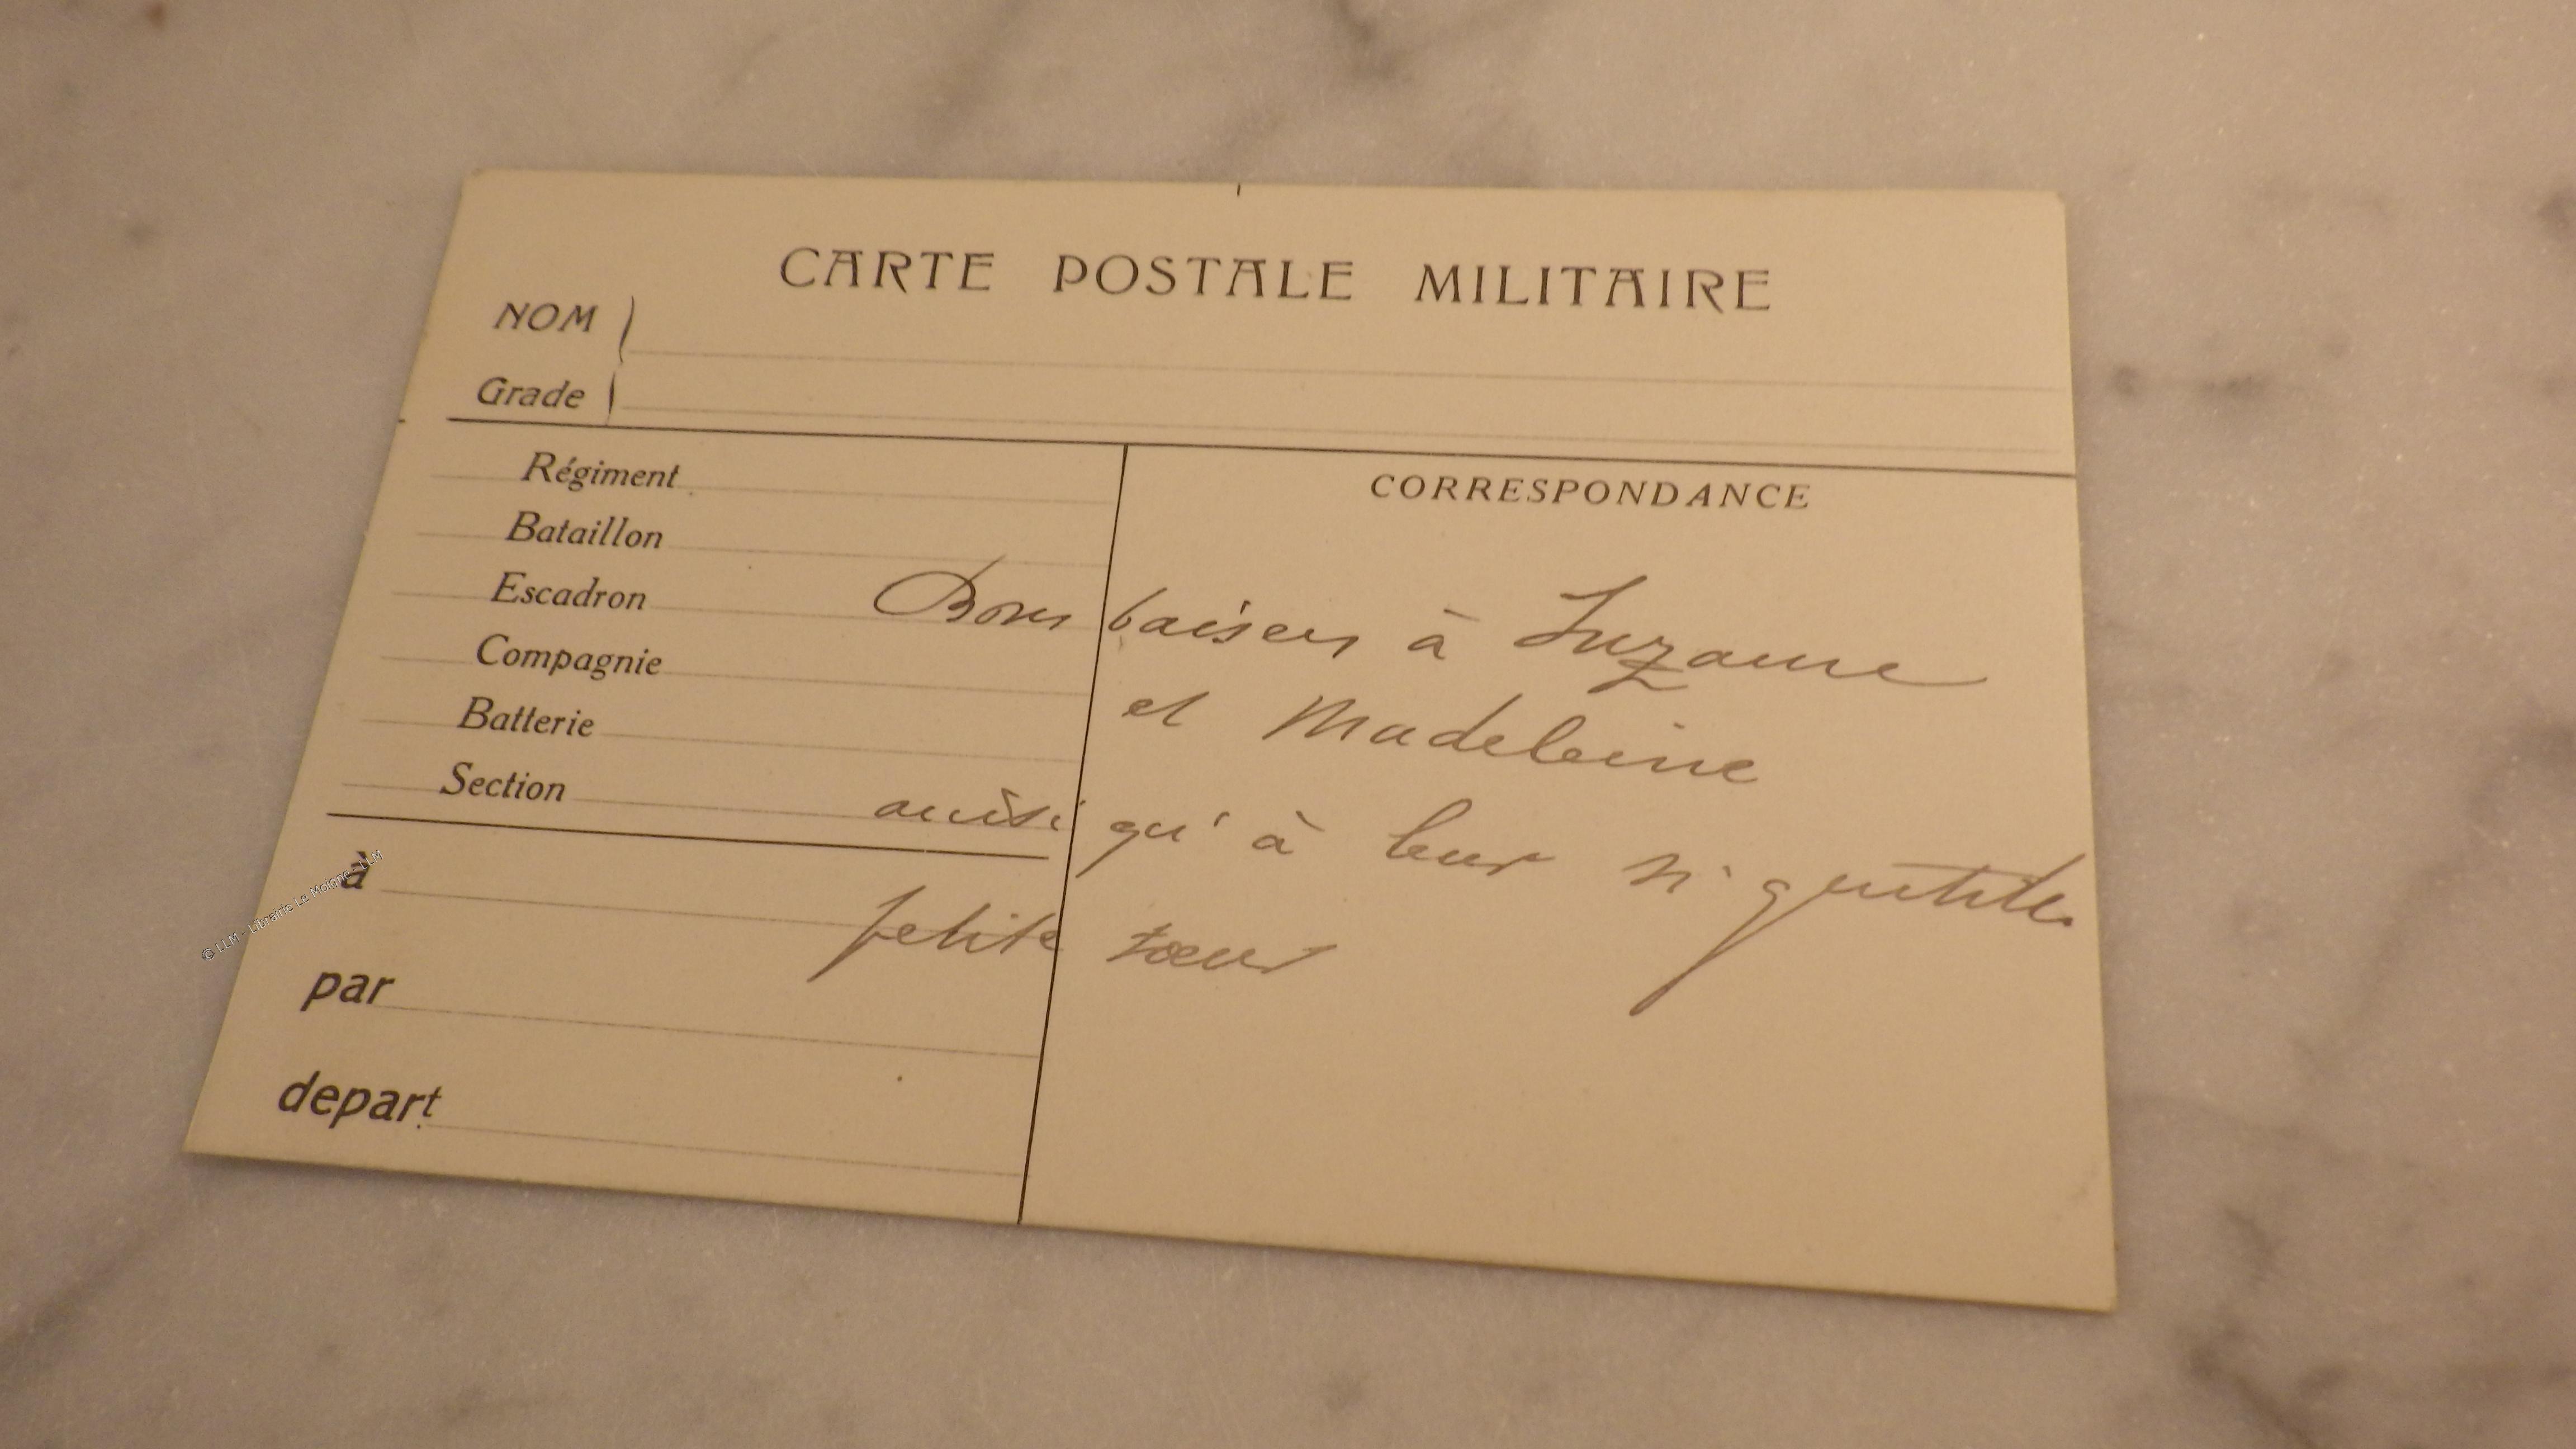 CARTE POSTALE MILITAIRE
NOM
Grade
Régiment
Bataillon
Escadron
Compagnie
Batterie
Section
à
par
depart
CORRESPONDANCE
Bons baisers à Suzanne
et Madeleine
ainsi qu'à leur si gentille
petite sœur
© LLM - Librairie Le Moigne - LLM